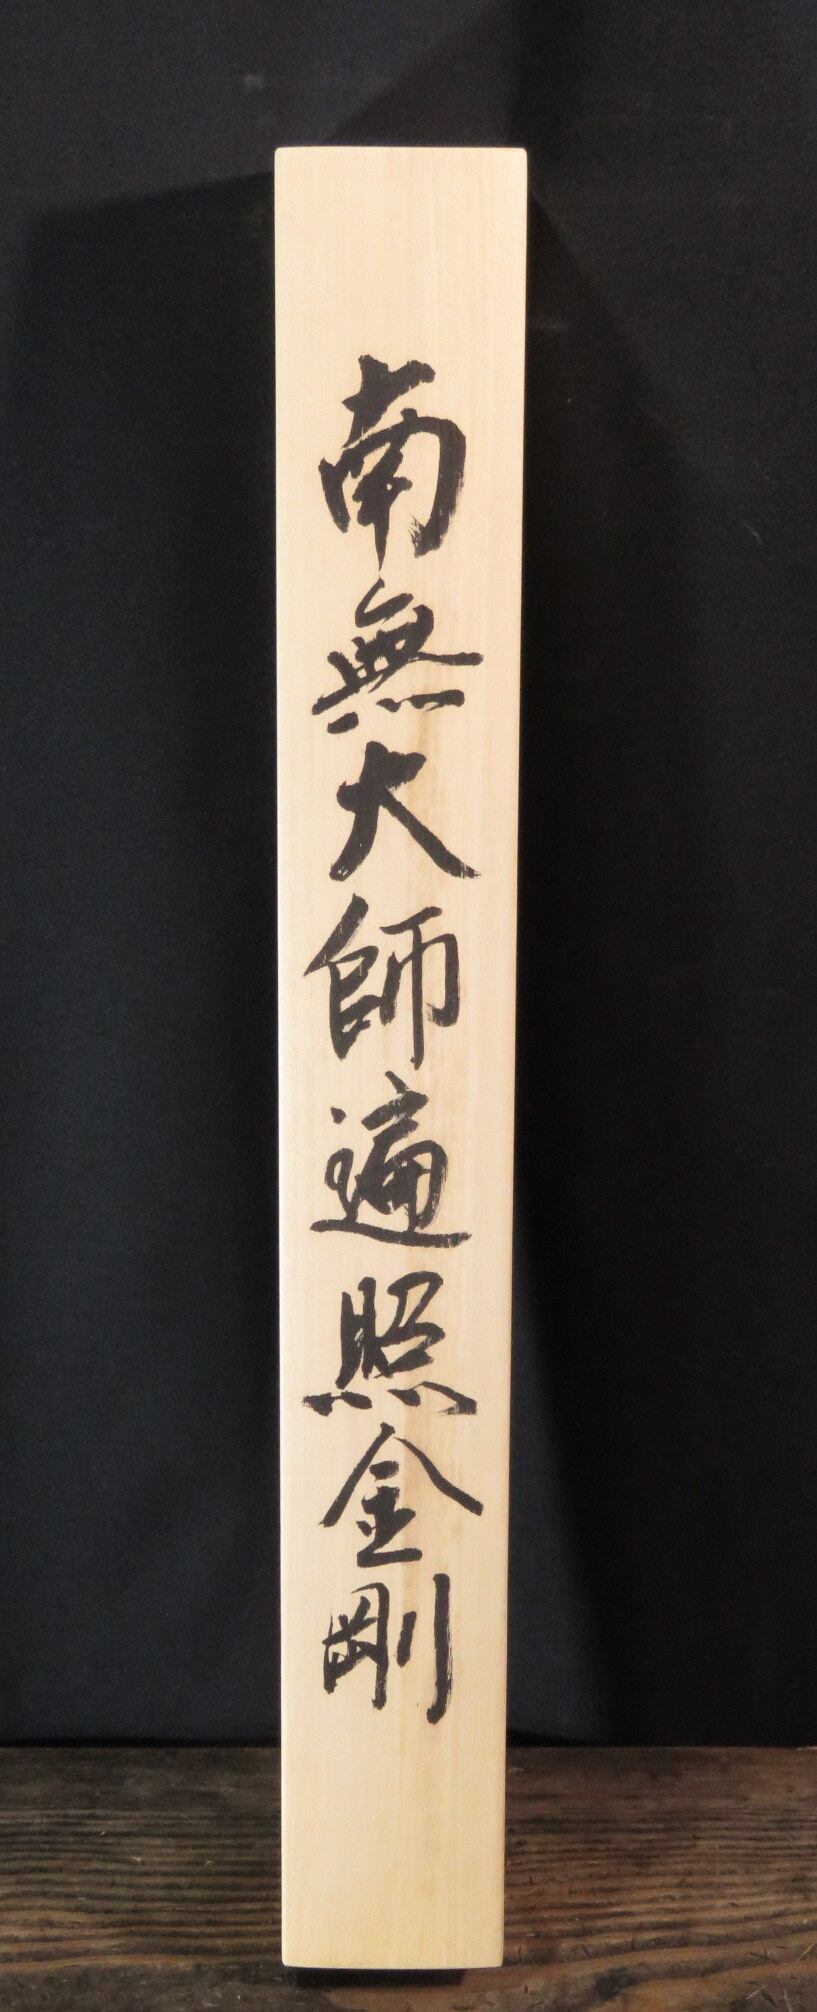 南無大師遍照金剛